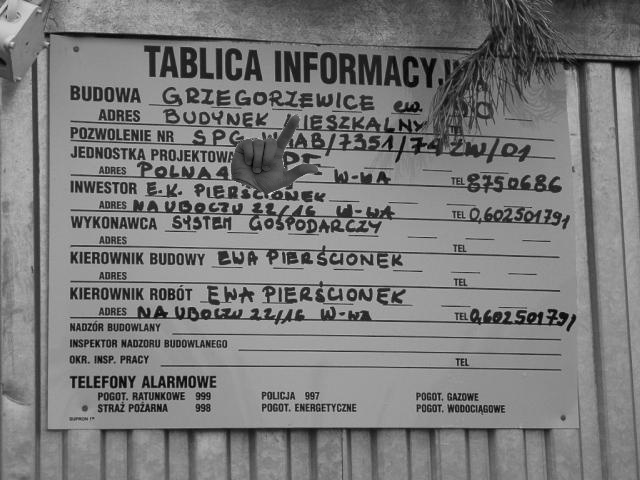 TABLICA INFORMACYJ
BUDOWA GRZEGORZEWICE ew.
ADRES BUDYNEK MIESZKALNY
POZWOLENIE NR SPG /7351/74 ZW/01
JEDNOSTKA PROJEKTOWA
ADRES POLNA W-WA TEL 8750686
INWESTOR E.K. PIERŚCIONEK
ADRES NA UBOCZU 22/16 W-WA TEL 0,602501791
WYKONAWCA SYSTEM GOSPODARCZY
ADRES TEL
KIEROWNIK BUDOWY EWA PIERŚCIONEK
ADRES TEL
KIEROWNIK ROBÓT EWA PIERŚCIONEK
ADRES NA UBOCZU 22/16 W-WA TEL 0,602501791
NADZÓR BUDOWLANY
INSPEKTOR NADZORU BUDOWLANEGO
OKR. INSP. PRACY TEL
TELEFONY ALARMOWE
POGOT. RATUNKOWE 999 POLICJA 997 POGOT. GAZOWE
STRAŻ POŻARNA 998 POGOT. ENERGETYCZNE POGOT. WODOCIĄGOWE